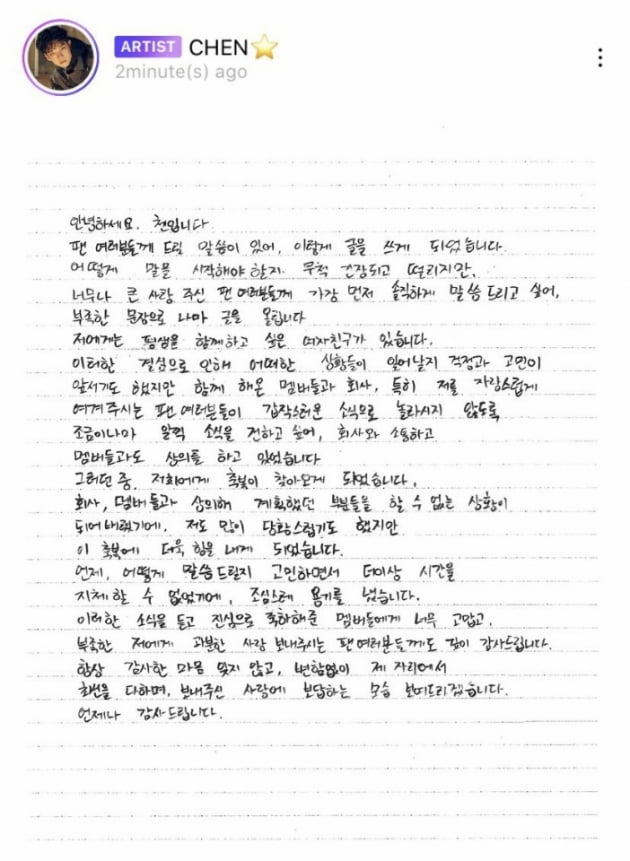 ARTIST CHEN⭐
2minute(s) ago
안녕하세요. 첸입니다
팬 여러분들께 드릴 말씀이 있어, 이렇게 글을 쓰게 되었습니다.
어떻게 말을 시작해야 할지 무척 긴장되고 떨리지만,
너무나 큰 사랑 주신 팬 여러분들께 가장 먼저 솔직하게 말씀드리고 싶어,
부족한 문장으로 나마 글을 올립니다
저에게는 평생을 함께하고 싶은 여자친구가 있습니다.
이러한 결심으로 인해 어떠한 상황들이 일어날지 걱정과 고민이
앞서기도 했지만 함께 해온 멤버들과 회사, 특히 저를 자랑스럽게
여겨주시는 팬 여러분들이 갑작스러운 소식으로 놀라시지 않도록
조금이나마 일찍 소식을 전하고 싶어, 회사와 소통하고
멤버들과도 상의를 하고 있었습니다
그러던 중, 저희에게 축복이 찾아오게 되었습니다.
회사, 멤버들과 상의해 계획했던 부분들을 할 수 없는 상황이
되어버렸기에, 저도 많이 당황스럽기도 했지만
이 축복에 더욱 힘을 내게 되었습니다.
언제, 어떻게 말씀드릴지 고민하면서 더이상 시간을
지체할 수 없었기에, 조심스레 용기를 냈습니다.
이러한 소식을 듣고 진심으로 축하해준 멤버들에게 너무 고맙고,
부족한 저에게 과분한 사랑 보내주시는 팬여러분들께도 깊이 감사드립니다.
항상 감사한 마음 잊지 않고, 변함없이 제 자리에서
최선을 다하며, 보내주신 사랑에 보답하는 모습 보여드리겠습니다.
언제나 감사드립니다.